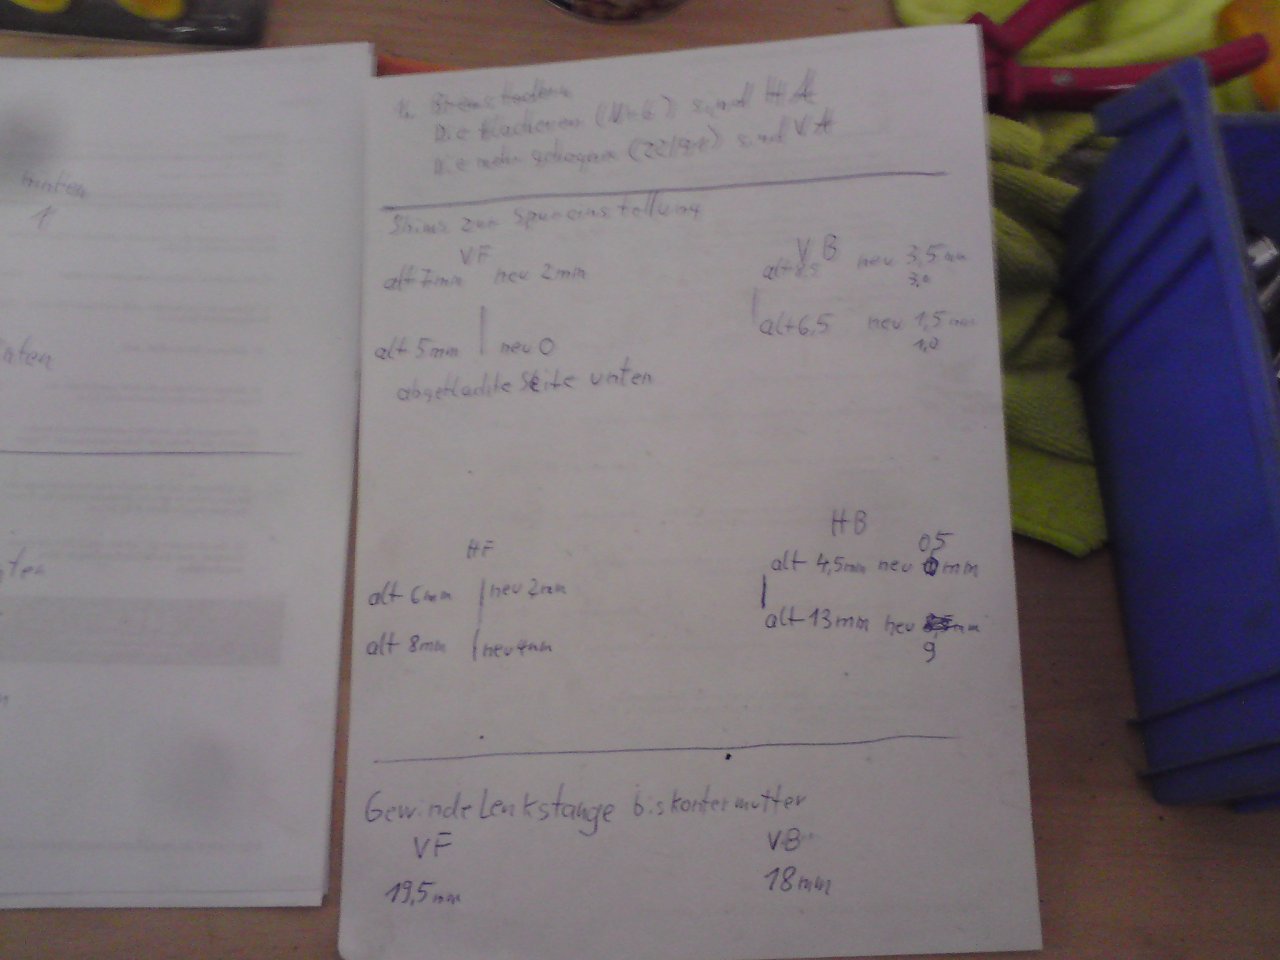 hinten
1
nten
nten
Die flacheren (V-6) sind HA
Die mehr schrägen (22/21) sind VA
Shims zur Spureinstellung
VF
alt 7mm neu 2mm
alt 5mm neu 0
abgeflachte Seite unten
VB
alt 8,5 neu 3,5mm
3,0
alt 6,5 neu 1,5mm
1,0
HF
alt 6mm neu 2mm
alt 8mm neu 4mm
HB
0,5
alt 4,5mm neu mm
alt 13mm neu
9
Gewinde Lenkstange bis kontermutter
VF VB
19,5mm 18mm